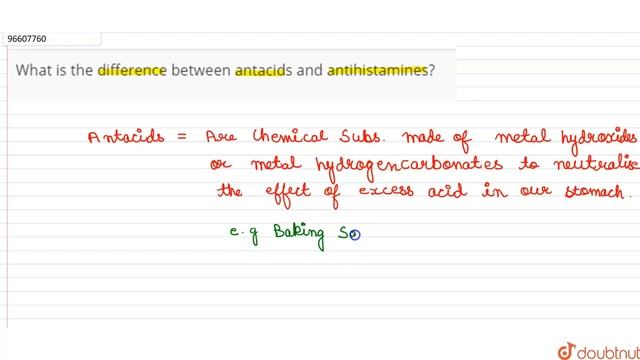 96607760
What is the difference between antacids and antihistamines?
Antacids = Are Chemical Subs. made of metal hydroxides
or metal hydrogencarbonates to neutralise
the effect of excess acid in our stomach.
e.g Baking So
doubtnut